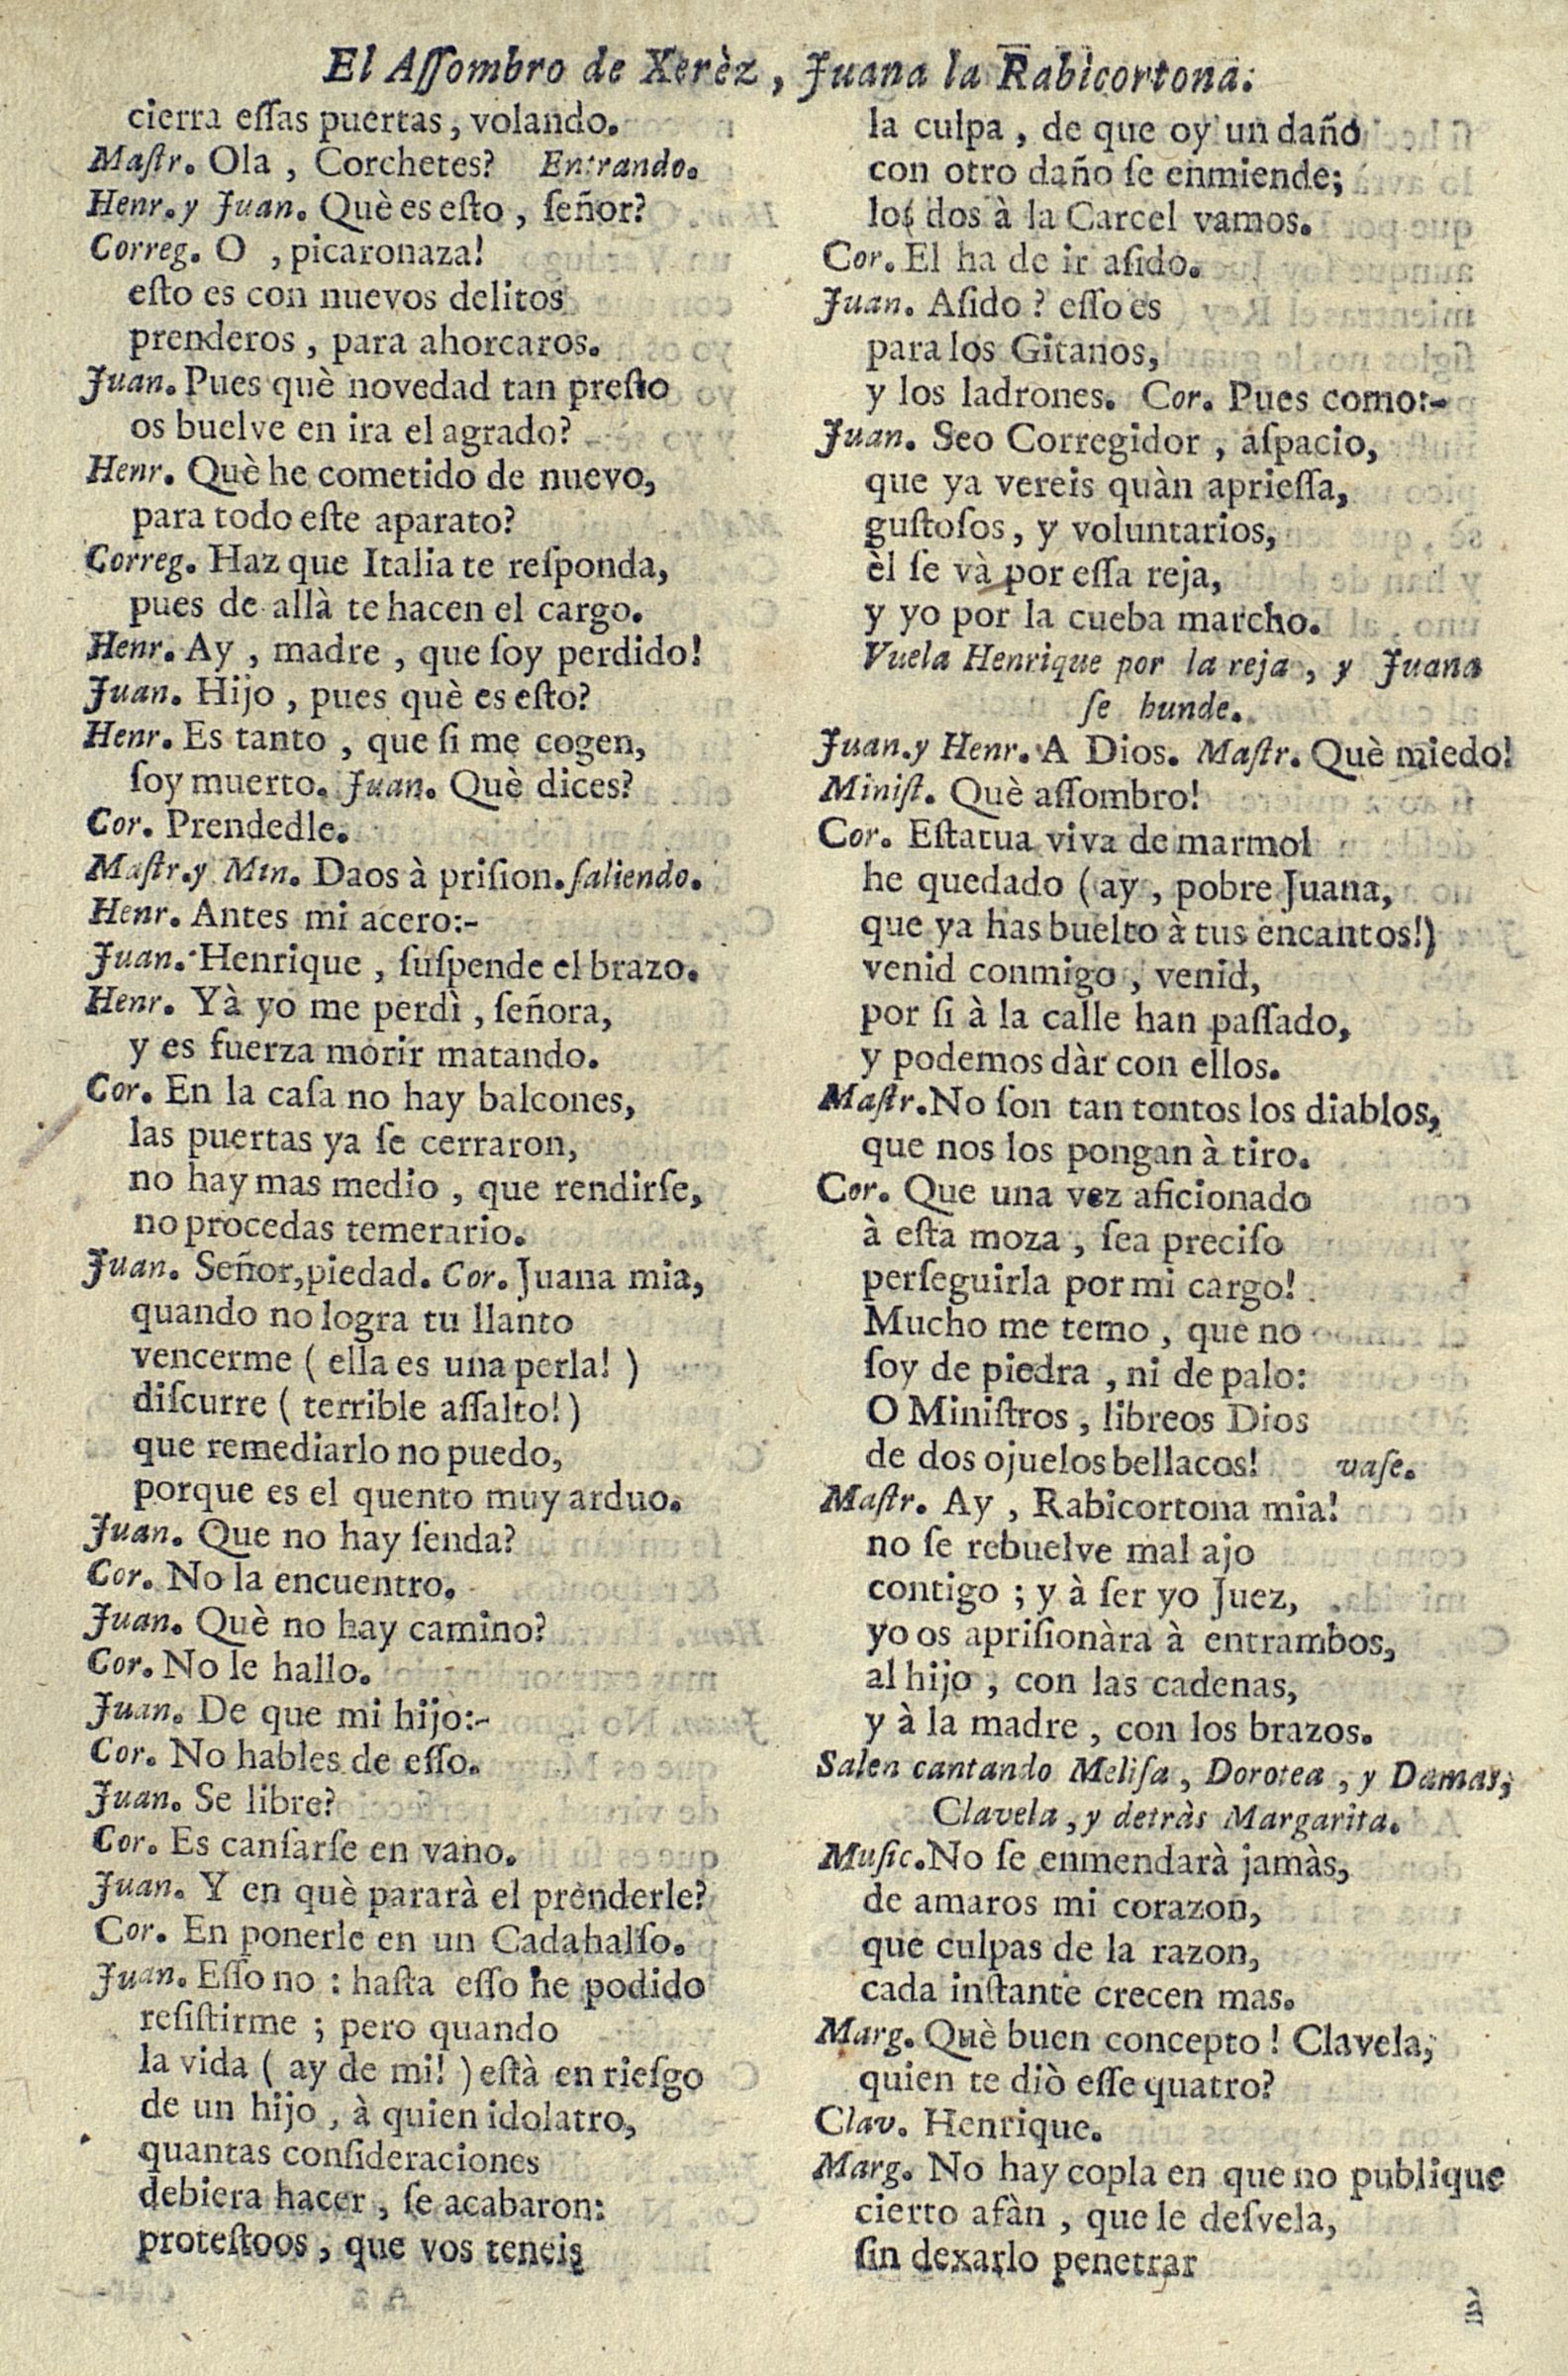 El Aſſombro de Xerèz, Juana la Rabicortona.
cierra eſſas puertas, volando.
Maſtr. Ola, Corchetes? Entrando.
Henr. y Juan. Què es eſto, ſeñor?
Correg. O, picaronaza!
eſto es con nuevos delitos
prenderos, para ahorcaros.
Juan. Pues què novedad tan preſto
os buelve en ira el agrado?
Henr. Què he cometido de nuevo,
para todo eſte aparato?
Correg. Haz que Italia te reſponda,
pues de allà te hacen el cargo.
Henr. Ay, madre, que ſoy perdido!
Juan. Hijo, pues què es eſto?
Henr. Es tanto, que ſi me cogen,
ſoy muerto. Juan. Què dices?
Cor. Prendedle.
Maſtr. y Min. Daos à priſion. ſaliendo.
Henr. Antes mi acero:-
Juan. Henrique, ſuſpende el brazo.
Henr. Yà yo me perdì, ſeñora,
y es fuerza morir matando.
Cor. En la caſa no hay balcones,
las puertas ya ſe cerraron,
no hay mas medio, que rendirſe,
no procedas temerario.
Juan. Señor, piedad. Cor. Juana mia,
quando no logra tu llanto
vencerme (ella es una perla!)
diſcurre (terrible aſſalto!)
que remediarlo no puedo,
porque es el quento muy arduo.
Juan. Que no hay ſenda?
Cor. No la encuentro.
Juan. Què no hay camino?
Cor. No le hallo.
Juan. De que mi hijo:-
Cor. No hables de eſſo.
Juan. Se libre?
Cor. Es canſarſe en vano.
Juan. Y en què pararà el prenderle?
Cor. En ponerle en un Cadahalſo.
Juan. Eſſo no: haſta eſſo he podido
reſiſtirme; pero quando
la vida (ay de mi!) eſtà en rieſgo
de un hijo, à quien idolatro,
quantas conſideraciones
debiera hacer, ſe acabaron:
proteſtoos, que vos teneis
la culpa, de que oy un daño
con otro daño ſe enmiende;
los dos à la Carcel vamos.
Cor. El ha de ir aſido.
Juan. Aſido? eſſo es
para los Gitanos,
y los ladrones. Cor. Pues como:-
Juan. Seo Corregidor, aſpacio,
que ya vereis quàn aprieſſa,
guſtoſos, y voluntarios,
èl ſe và por eſſa reja,
y yo por la cueba marcho.
Vuela Henrique por la reja, y Juana
ſe hunde.
Juan. y Henr. A Dios. Maſtr. Què miedo!
Miniſt. Què aſſombro!
Cor. Eſtatua viva de marmol
he quedado (ay, pobre Juana,
que ya has buelto à tus encantos!)
venid conmigo, venid,
por ſi à la calle han paſſado,
y podemos dàr con ellos.
Maſtr. No ſon tan tontos los diablos,
que nos los pongan à tiro.
Cor. Que una vez aficionado
à eſta moza, ſea preciſo
perſeguirla por mi cargo!
Mucho me temo, que no
ſoy de piedra, ni de palo:
O Miniſtros, libreos Dios
de dos ojuelos bellacos! vaſe.
Maſtr. Ay, Rabicortona mia!
no ſe rebuelve mal ajo
contigo; y à ſer yo Juez,
yo os apriſionàra à entrambos,
al hijo, con las cadenas,
y à la madre, con los brazos.
Salen cantando Meliſa, Dorotea, y Damas,
Clavela, y detràs Margarita.
Muſic. No ſe enmendarà jamàs,
de amaros mi corazon,
que culpas de la razon,
cada inſtante crecen mas.
Marg. Què buen concepto! Clavela,
quien te diò eſſe quatro?
Clav. Henrique.
Marg. No hay copla en que no publique
cierto afàn, que le deſvela,
ſin dexarlo penetrar
à